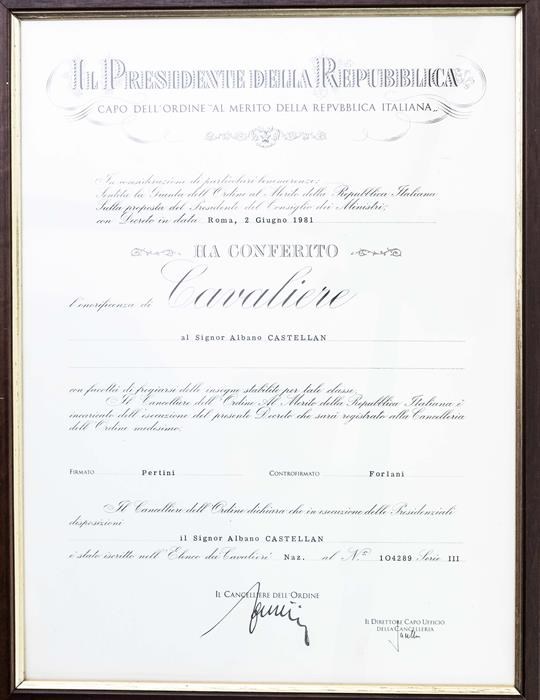 IL PRESIDENTE DELLA REPUBBLICA
CAPO DELL'ORDINE "AL MERITO DELLA REPVBBLICA ITALIANA„
In considerazione di particolari benemerenze;
Sentita la Giunta dell'Ordine al Merito della Repubblica Italiana
Sulla proposta del Presidente del Consiglio dei Ministri;
con Decreto in data Roma, 2 Giugno 1981
HA CONFERITO
l'onorificenza di Cavaliere
al Signor Albano CASTELLAN
con facoltà di fregiarsi delle insegne stabilite per tale classe.
Il Cancelliere dell'Ordine Al Merito della Repubblica Italiana è
incaricato dell'esecuzione del presente Decreto che sarà registrato alla Cancelleria
dell'Ordine medesimo.
FIRMATO Pertini CONTROFIRMATO Forlani
Il Cancelliere dell'Ordine dichiara che in esecuzione delle Presidenziali
disposizioni
il Signor Albano CASTELLAN
è stato iscritto nell'Elenco dei Cavalieri Naz. al N.º 104289 Serie III
IL CANCELLIERE DELL'ORDINE
IL DIRETTORE CAPO UFFICIO
DELLA CANCELLERIA